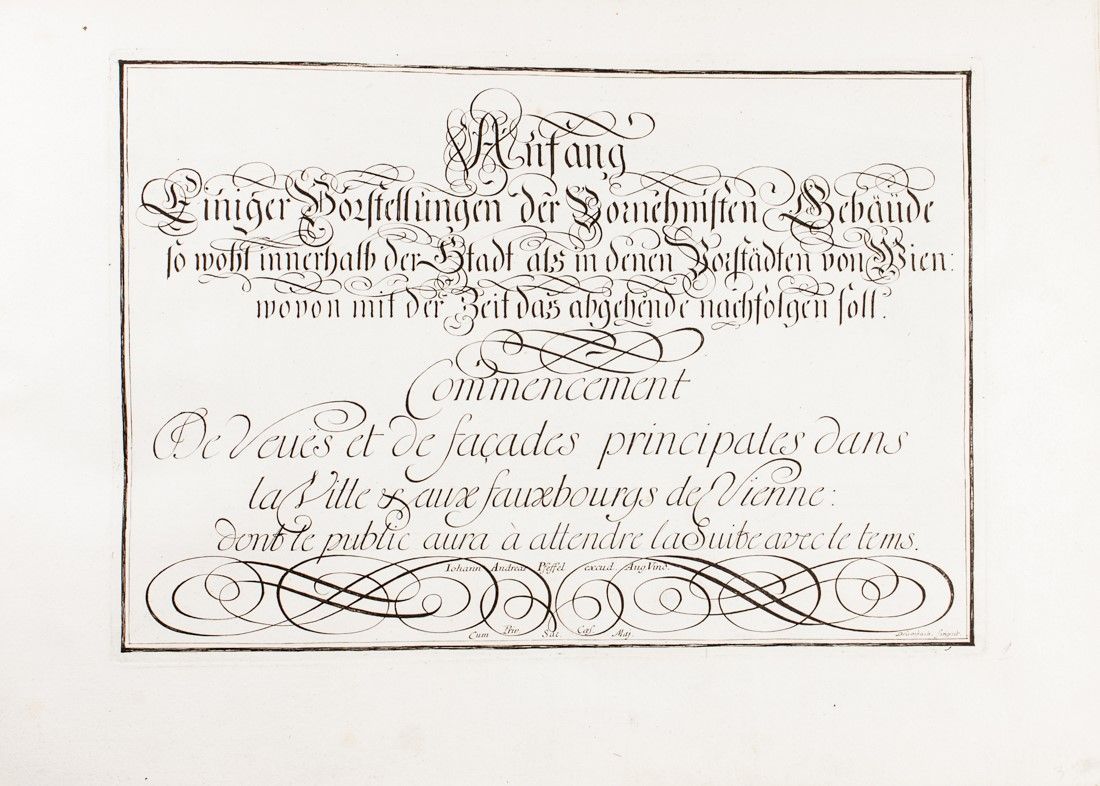 Anfang
Einiger Vorstellungen der Vornehmsten Gebäude
so wohl innerhalb der Stadt als in denen Vorstädten von Wien:
wovon mit der Zeit das abgehende nachfolgen soll.
Commencement
De Veües et de façades principales dans
la Ville & aux fauxbourgs de Vienne:
dont le public aura à attendre la Suite avec le tems.
Iohann Andreas Pfeffel excud. Aug. Vind.
Cum Priv. Sac. Cæs. Maj.